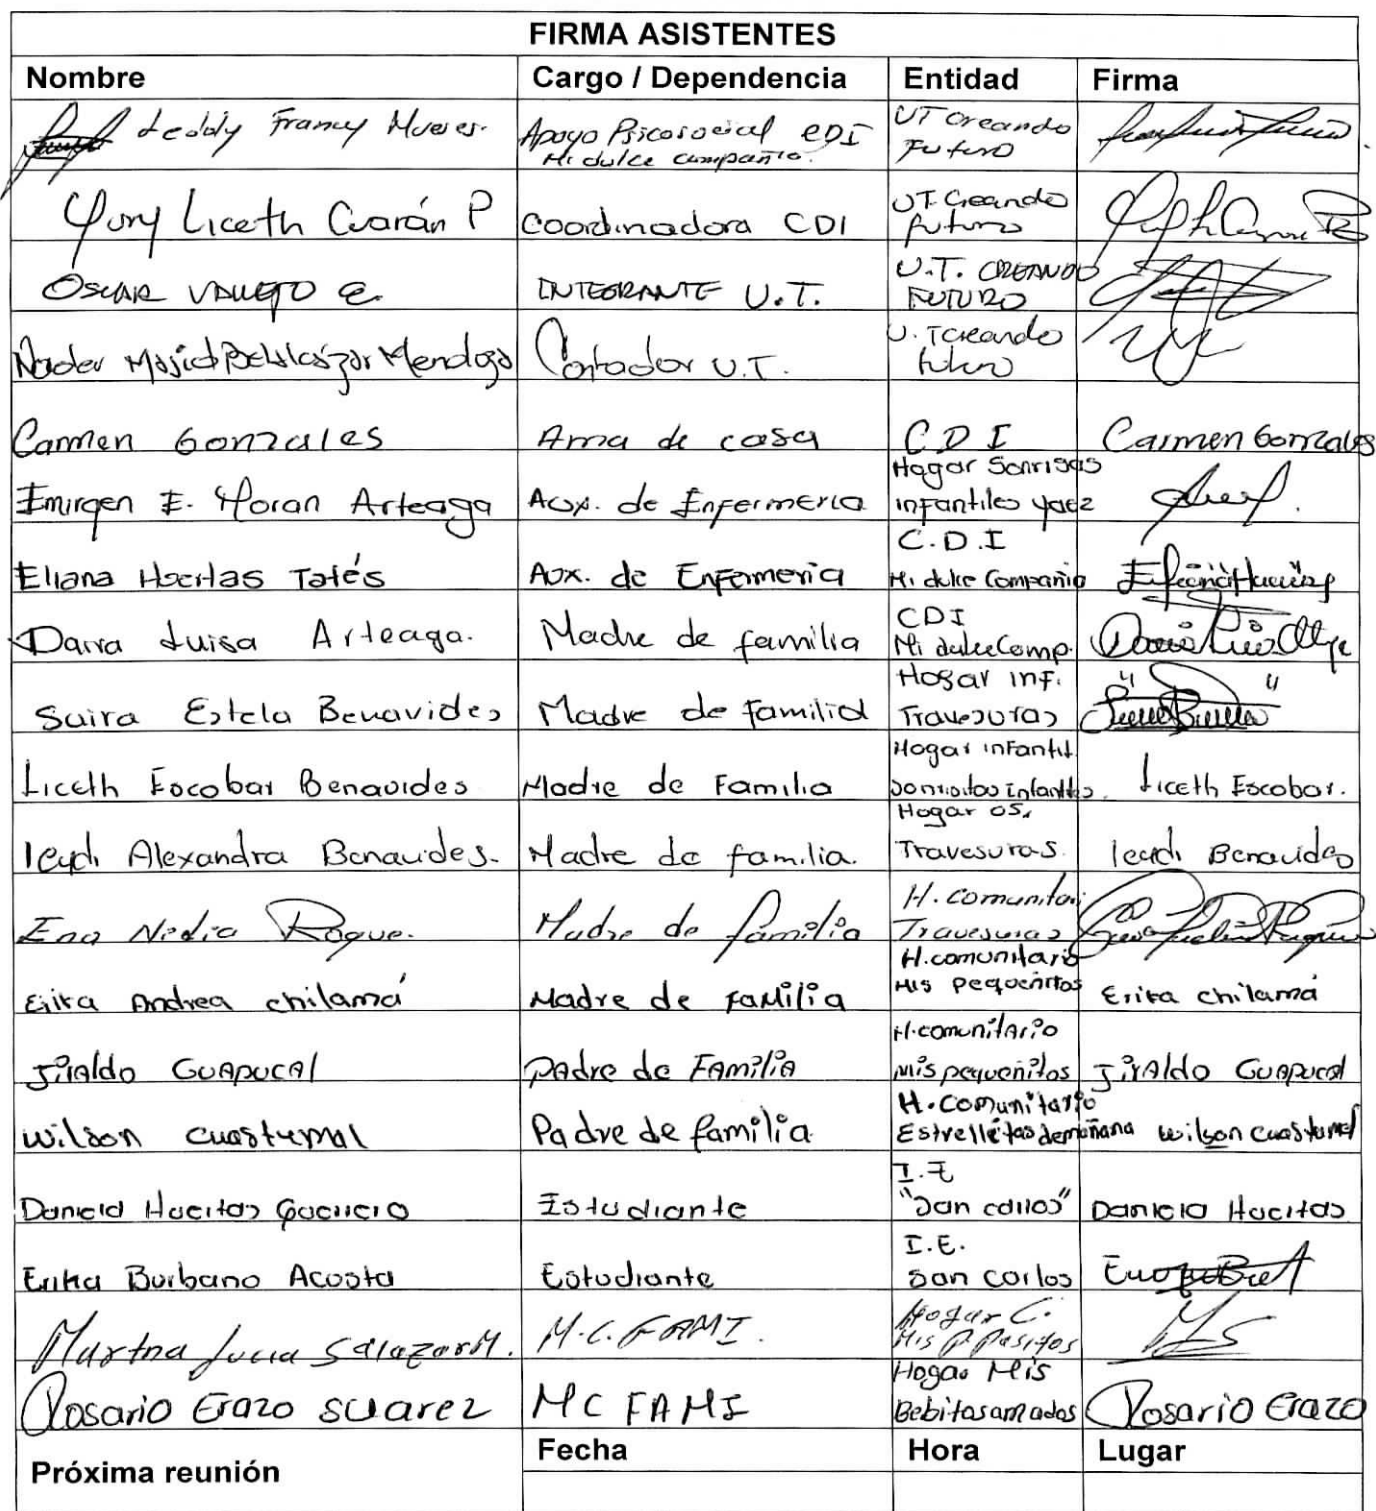 FIRMA ASISTENTES
Nombre Cargo / Dependencia Entidad Firma
Leddy Francy Apoyo Psicosocial CDI UT Creando
Mi dulce compañia. Futuro
Yury Liceth Cuarán P Coordinadora CDI UT. Creando
futuro
OSCAR VALLEJO E. INTEGRANTE U.T. U.T. CREANDO
FUTURO
Nader Majid Belalcázar Mendoza Contador U.T. U. T creando
futuro
Carmen Gonzales Ama de casa C D I Carmen Gonzales
Emirgen E. Moran Arteaga Aux. de Enfermeria Hogar Sonrisas
infantiles yaez
Eliana Huertas Tatés Aux. de Enfermeria C.D.I
Mi dulce Compañia
Luisa Arteaga. Madre de familia CDI
Mi dulce Comp.
Saira Estela Benavides Madre de familia Hogar inf.
Travesuras
Liceth Escobar Benavides. Madre de Familia Hogar infantil
Liceth Escobar.
leydi Alexandra Benavides. Madre de familia. Hogar
Travesuras. leydi Benavides
Ena Nidia Roque. Madre de familia H. comunitari
Travesuras
Erika Andrea chilamá Madre de FaMilia H. comunitario
Mis pequeñitos Erika chilamá
JirAldo GUAPUCAl pAdre de FAMiliA H. comunitArio
Mis pequeñitos JirAldo GUApucal
wilson cuastumal Padre de familia H. Comunitario
Estrellitas demañana wilson cuastumal
Daniela Huertas Estudiante I.E
"San carlos" Daniela Huertas
Erika Burbano Acosta Estudiante I.E.
San Carlos
Martha Lucia Salazar M. M.C. FAMI. Hogar C.
Mis P Pasitos
Rosario Erazo suarez MC FAMI Hogar Mis
Bebitas amados Rosario Erazo
Próxima reunión Fecha Hora Lugar